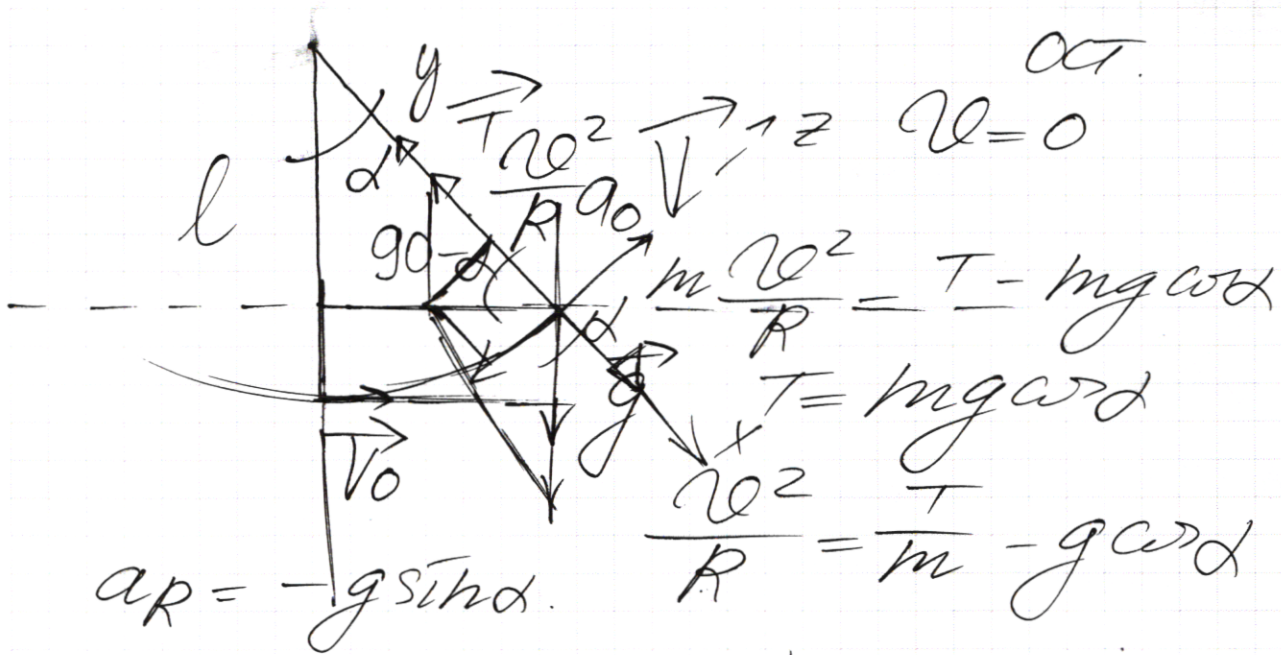 ост.
y
T⃗
V⃗
z
𝒱 = 0
α
𝒱²/R
a₀
l
90-α
m𝒱²/R = T - mg cosα
α
g⃗
T = mg cosα
x
V₀⃗
𝒱²/R = T/m - g cosα
a_R = -g sinα.